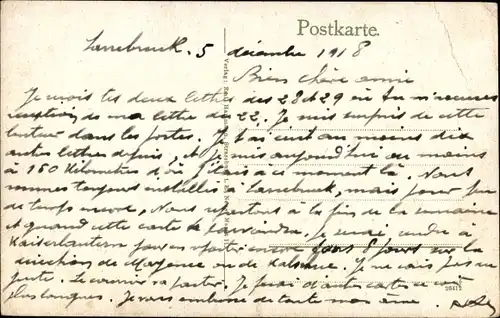 Postkarte.
5 décembre 1918
Bien chère amie
Je reçois tes deux lettres des 28 et 29 où tu m'accuses
réception de ma lettre du 22. Je suis surpris de cette
lenteur dans les postes. Je t'ai écrit au moins dix
autres lettres depuis, et je suis aujourd'hui au moins
à 150 kilomètres d'où j'étais à ce moment là. Nous
sommes toujours installés à mais pour peu
de temps encore. Nous repartons à la fin de la semaine
et quand cette carte te parviendra, je serai rendu à
Kaiserlautern pour en repartir encore 8 jours sur la
direction de Mayence ou de Je ne sais pas au
juste. Le courrier va partir. Je ferai d'autres cartes ce soir
plus longues. Je vous embrasse de toute mon âme.